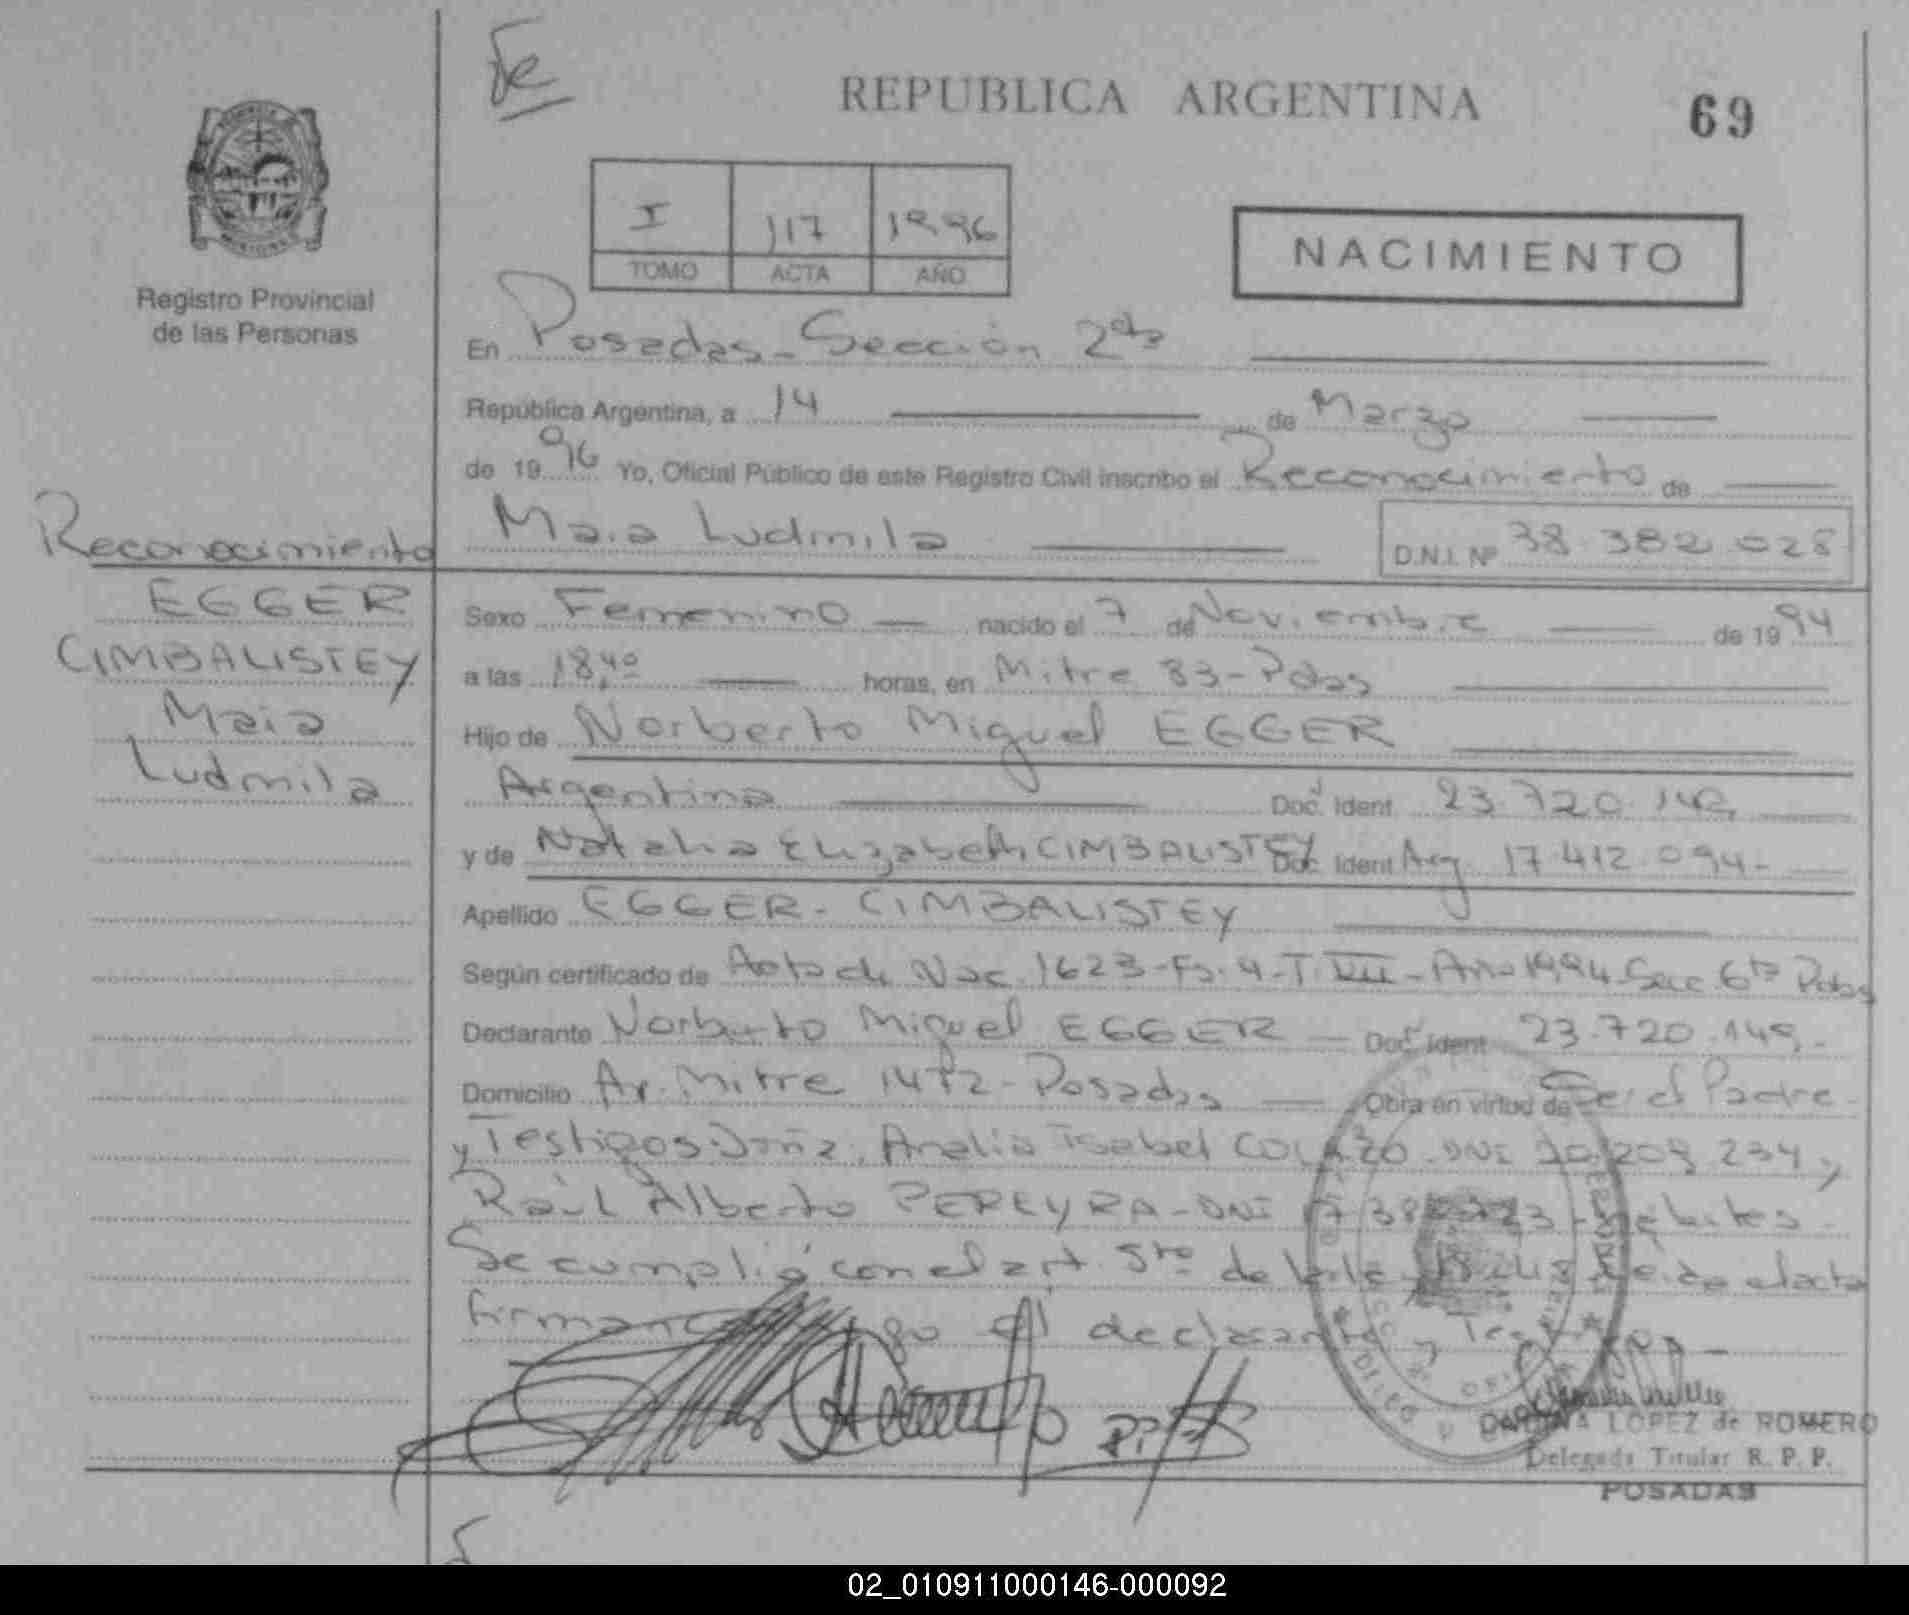 Fe
REPUBLICA ARGENTINA
69
I 117 1996
TOMO ACTA AÑO
NACIMIENTO
Registro Provincial
de las Personas
En Posadas - Sección 2da
República Argentina, a 14 de Marzo
de 1996 Yo, Oficial Público de este Registro Civil inscribo el Reconocimiento de
Maia Ludmila D.N.I. Nº 38.382.028
Reconocimiento
EGGER
CIMBALISTEY
Maia
Ludmila
Sexo Femenino nacido el 7 de Noviembre de 1994
a las 18,40 horas, en Mitre 83 - Pdas
Hijo de Norberto Miguel EGGER
Argentina Doc. Ident. 23.720.149
y de Natalia Elizabeth CIMBALISTEY Doc. Ident Arg. 17.412.094 -
Apellido EGGER - CIMBALISTEY
Según certificado de Acta de Nac. 1623 - Fs. 4 - T. VIII - Año 1994 - Sec 6ta Pdas
Declarante Norberto Miguel EGGER - Doc. Ident. 23.720.149 -
Domicilio Av. Mitre 1472 - Posadas - Obra en virtud de Ser el Padre -
y Testigos: Doña. Analia Isabel DNI 20.209.234 y
Raúl Alberto PEREYRA - DNI
Se cumplió con el art. 5to de la acta
firmando el declarante y Testigos -
LOPEZ de ROMERO
Delegada Titular R. P. P.
POSADAS
02_010911000146-000092